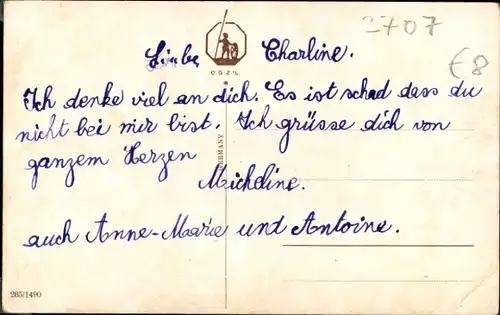 2707
Liebe Charline.
€8
O.G.Z.-L.
Ich denke viel an dich. Es ist schad dass du
nicht bei mir bist. Ich grüsse dich von
ganzem Herzen
Micheline.
auch Anne-Marie und Antoine.
GERMANY
265/1490